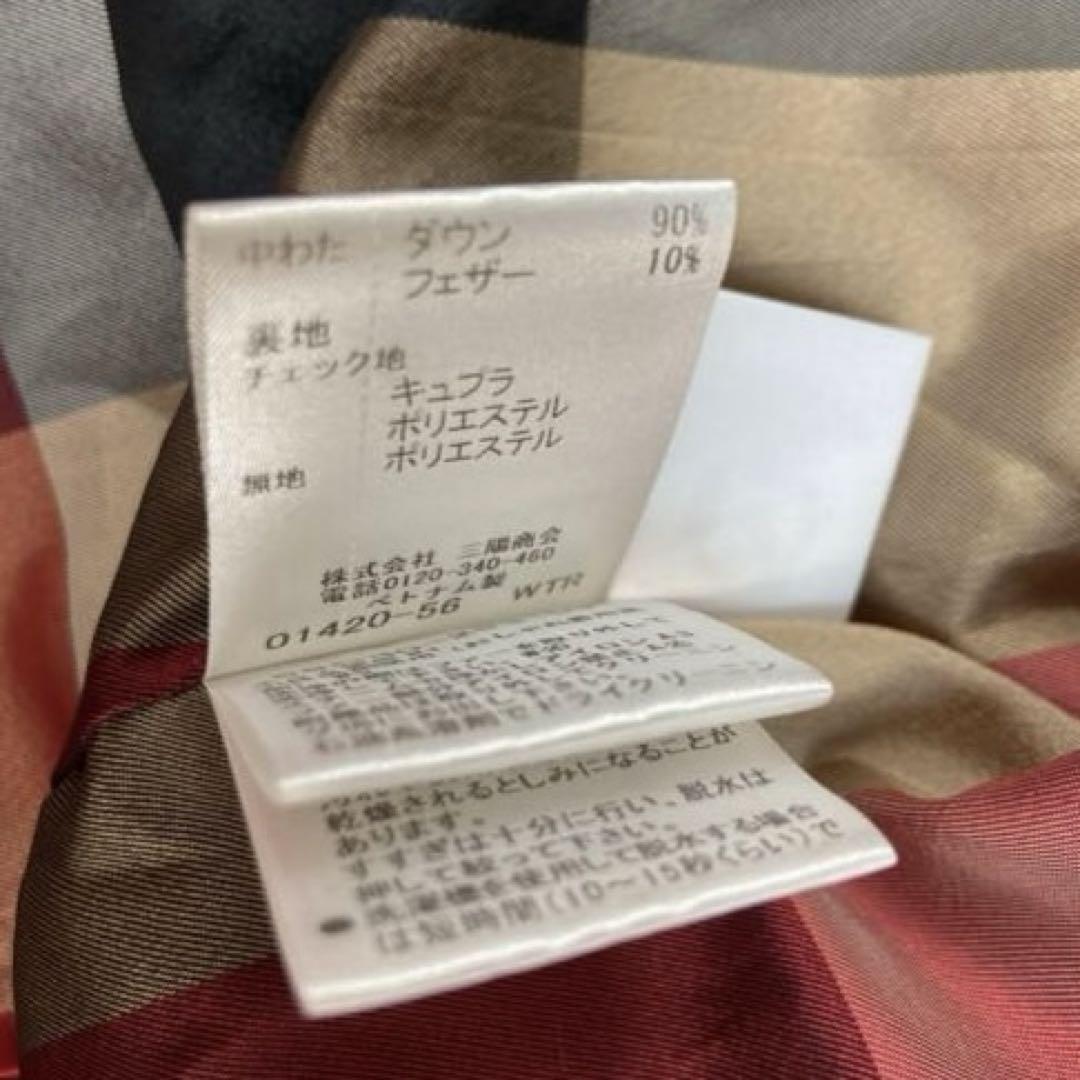 中わた ダウン 90%
フェザー 10%
裏地
チェック地
キュプラ
ポリエステル
ポリエステル
無地
株式会社 三陽商会
電話0120-340-460
ベトナム製
01420-56 WTR
石油系溶剤でドライクリーニン
乾燥されるとしみになることが
あります。
すすぎは十分に行い、脱水は
押して絞って下さい。
●洗濯機を使用して脱水する場合
は短時間(10～15秒くらい)で